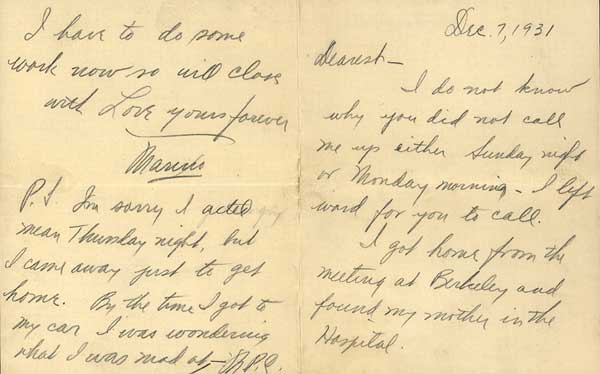 Dec. 7, 1931
Dearest—
I do not know
why you did not call
me up either Sunday night
or Monday morning - I left
word for you to call.
I got home from the
meeting at Berkeley and
found my mother in the
Hospital.
I have to do some
work now so will close
with Love yours forever
P.S. Im sorry I acted
mean Thursday night, but
I came away just to get
home. By the time I got to
my car I was wondering
what I was mad at,—